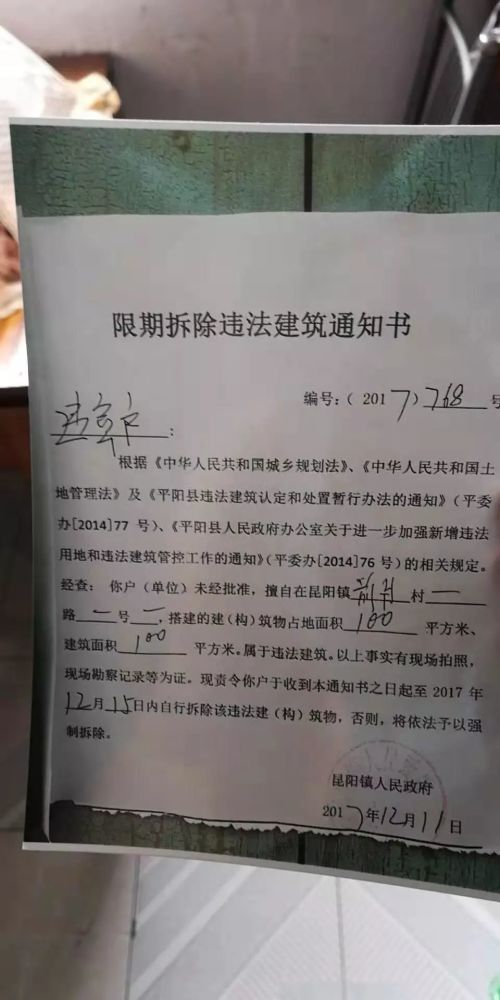 限期拆除违法建筑通知书
编号:（2017）768号
违章户:
根据《中华人民共和国城乡规划法》、《中华人民共和国土
地管理法》及《平阳县违法建筑认定和处置暂行办法的通知》（平委
办[2014]77 号）、《平阳县人民政府办公室关于进一步加强新增违法
用地和违法建筑管控工作的通知》（平委办[2014]76 号）的相关规定。
经查: 你户（单位）未经批准，擅自在昆阳镇 村 一
路 一 号 一，搭建的建（构）筑物占地面积 100 平方米、
建筑面积 100 平方米。属于违法建筑。以上事实有现场拍照，
现场勘察记录等为证。现责令你户于收到本通知书之日起至 2017 年
12月15日内自行拆除该违法建（构）筑物，否则，将依法予以强
制拆除。
昆阳镇人民政府
2017年12月11日